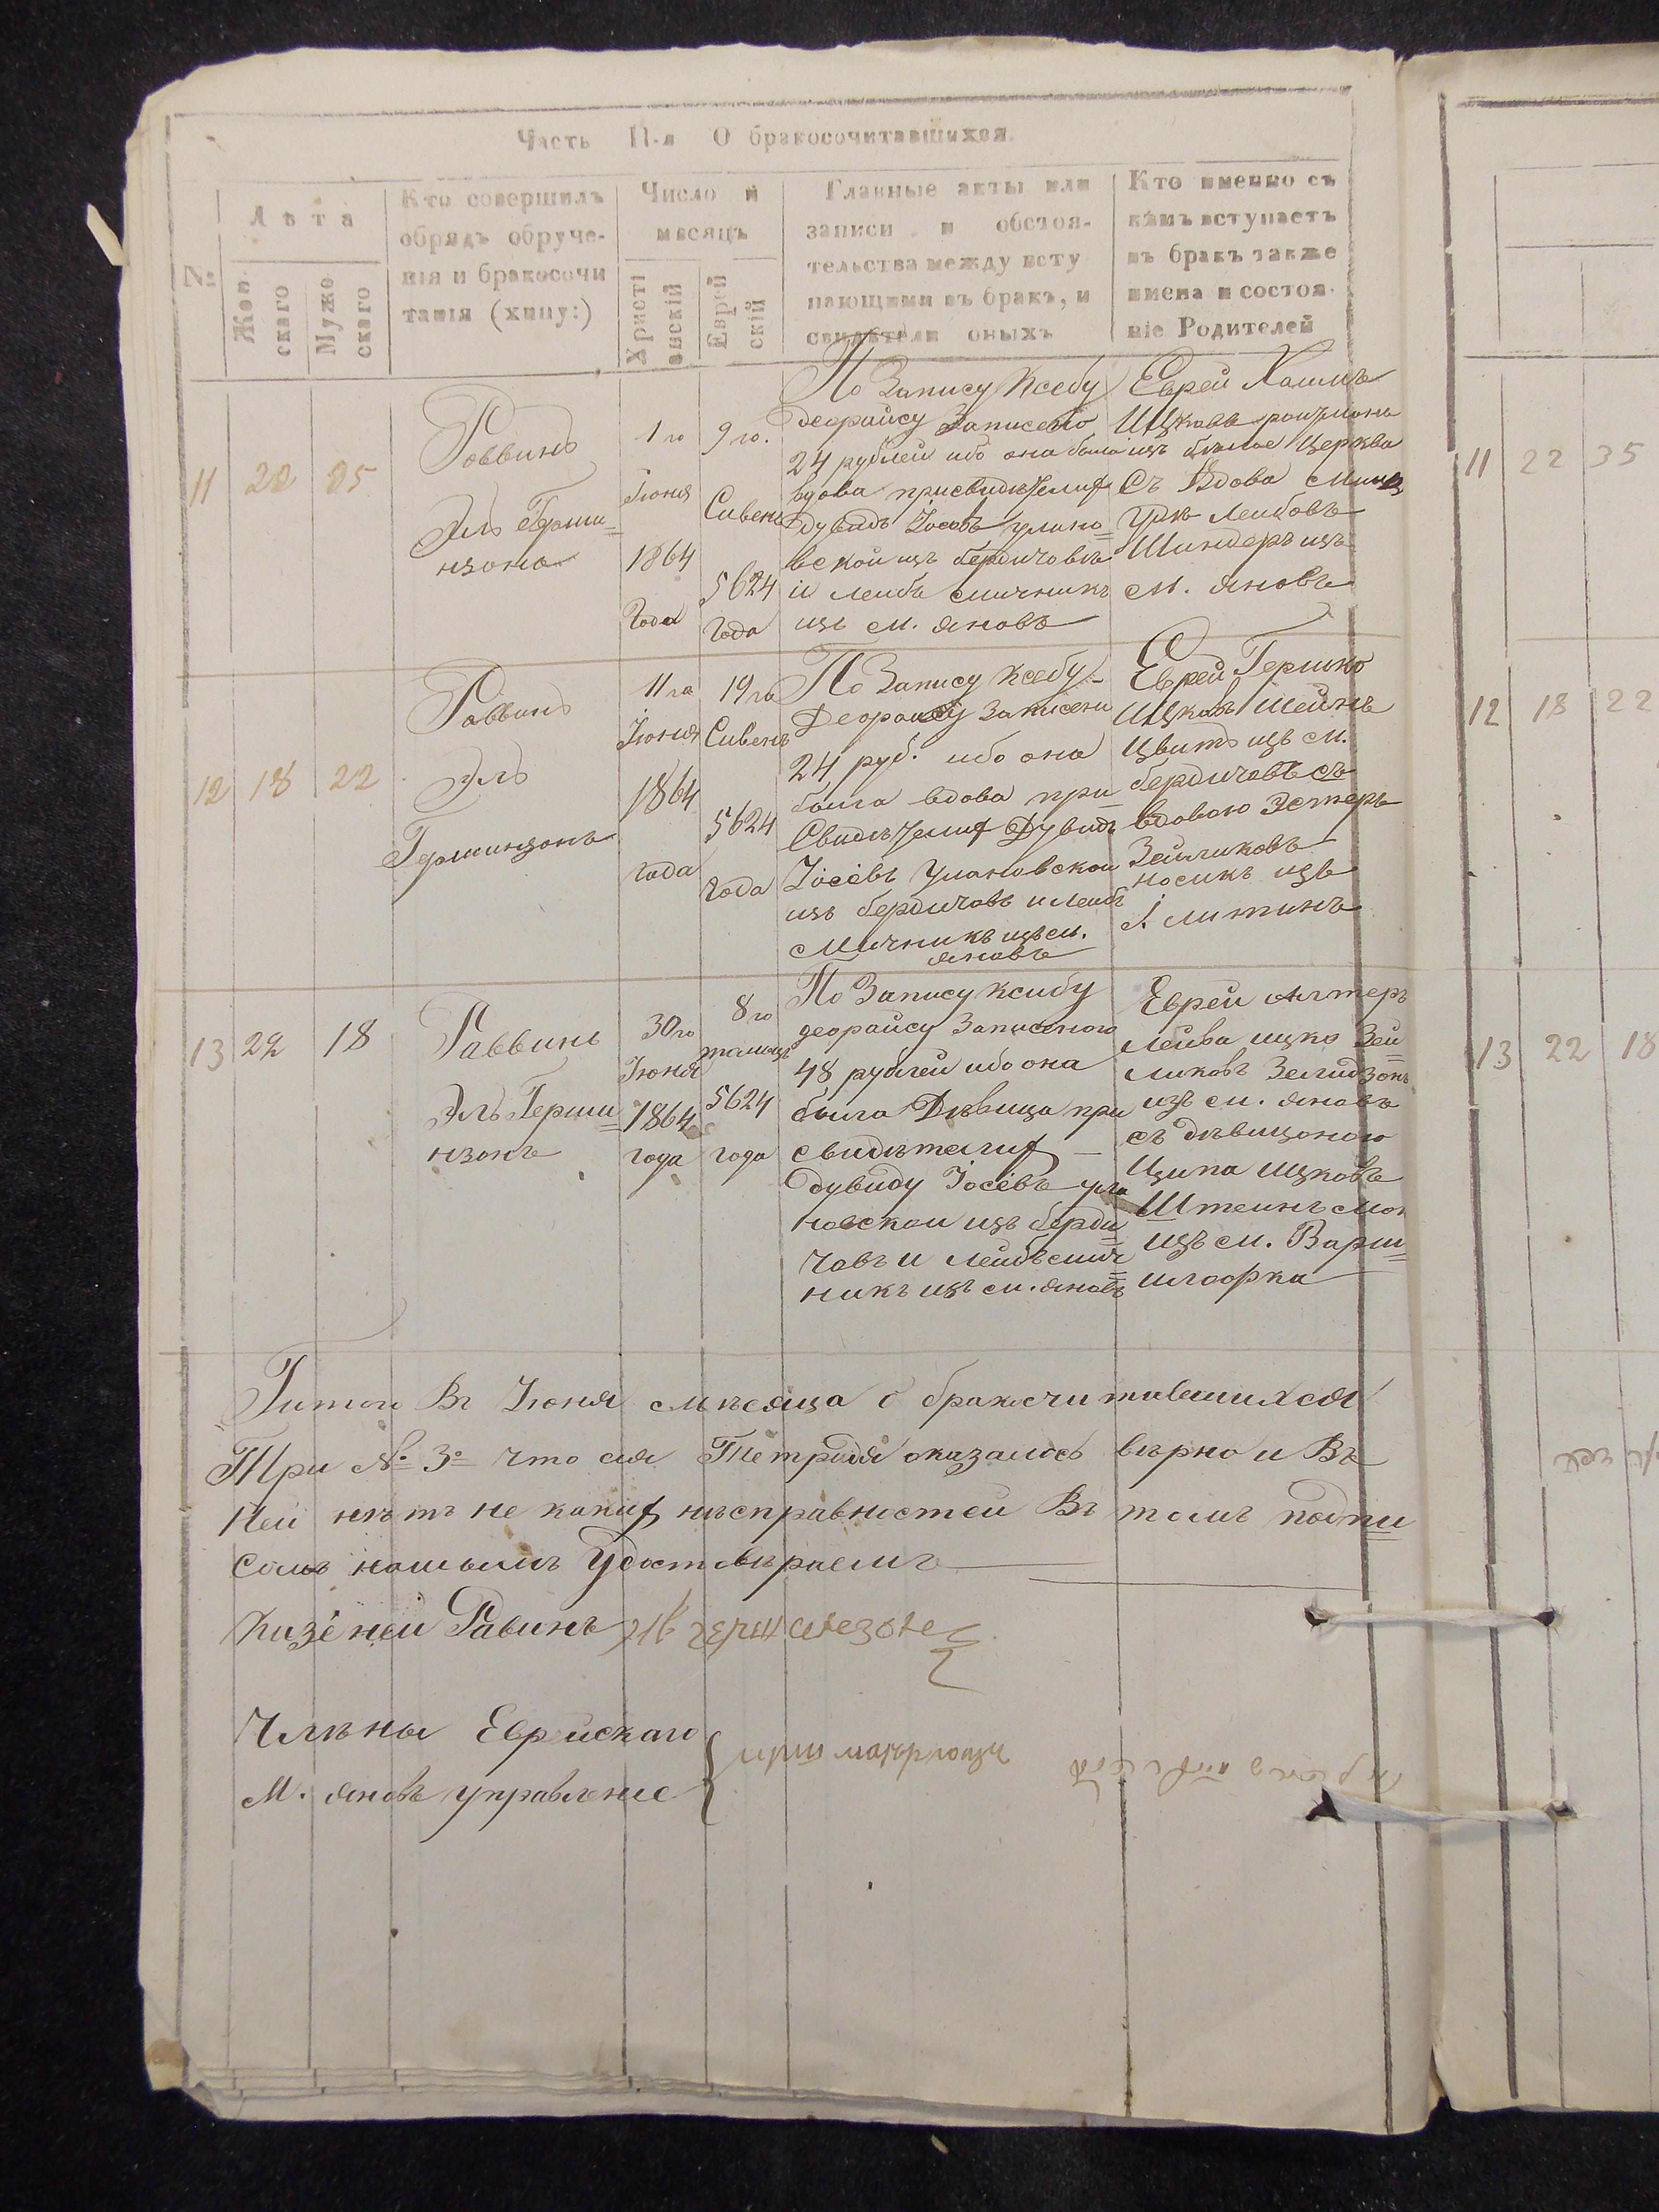 Часть II-я О бракосочитавшихся.
№
Лѣта
Жен
скаго
Муже
скаго
Кто совершилъ
обрядъ обруче-
нія и бракосочи
танія (хипу:)
Число и
мѣсяцъ
Христі
анскій
Еврей
скій
Главные акты или
записи и обстоя-
тельства между всту
пающими въ бракъ, и
свидѣтели оныхъ
Кто именно съ
кѣмъ вступаетъ
въ бракъ также
имена и состоя-
ніе Родителей
11
22
35
Раввинъ
Эль Герши=
нзонъ
1го
Іюня
1864
Года
9го.
Сивень
5624
Года
По Запису Ксебу
деорайсу Записено
24 рублей ибо она была
вдова при свидѣтелиф
Дувидъ Іосевъ улано=
вской изъ бердичовъ
и Лейбъ Смичникъ
изъ м. Яновъ
Еврей Хаимъ
Ицковъ
изъ бѣлое Церква
Съ Вдова
Лейбовъ
изъ
м. Яновъ
12
18
22
Раввинъ
Эль
Гершинзонъ
11га
Іюня
1864
года
19го
Сивень
5624
года
По Запису Ксебу-
Деорайсу Записени
24 руб. ибо она
была вдова при
Свидѣтелиф Дувидъ
Іосевъ Улановской
изъ бердичовъ и Лейбъ
Смичникъ изъ м.
Яновъ
Еврей Гершко
Ицковъ Шейнъ
Цвитъ изъ м.
бердичовъ съ
вдовою Эстеръ
Зейликовъ
носикъ изъ
Литинъ
13
22
18
Раввинъ
Эль Герши=
нзонъ
30го
Іюня
1864
года
8го
тамызъ
5624
года
По Запису ксибу
деорайсу Записеного
48 рублей ибо она
была Дѣвица при
свидѣтелиф
Дувиду Іосевъ Ула
новской изъ берди=
човъ и Лейбъ Смич=
никъ изъ м. Яновъ
Еврей Алтеръ
Лейва ицко Зей=
ликовъ Зелидзонъ
изъ м. Яновъ
съ дѣвицоною
Ципа Ицковъ
Штейнъ
изъ м. Варш=
Итого Въ Іюня мѣсяца о бракосчитавшихся
Три № 3о что сія Тетрадя оказалось вѣрно и Въ
Ней нѣтъ не какиф нѣсправностей Въ томъ подпи=
сомъ нашымъ Удостовѣраемъ
Казеней Равинъ
Члѣны Еврейскаго
М. Яновъ управление
11
22
35
12
18
22
13
22
18